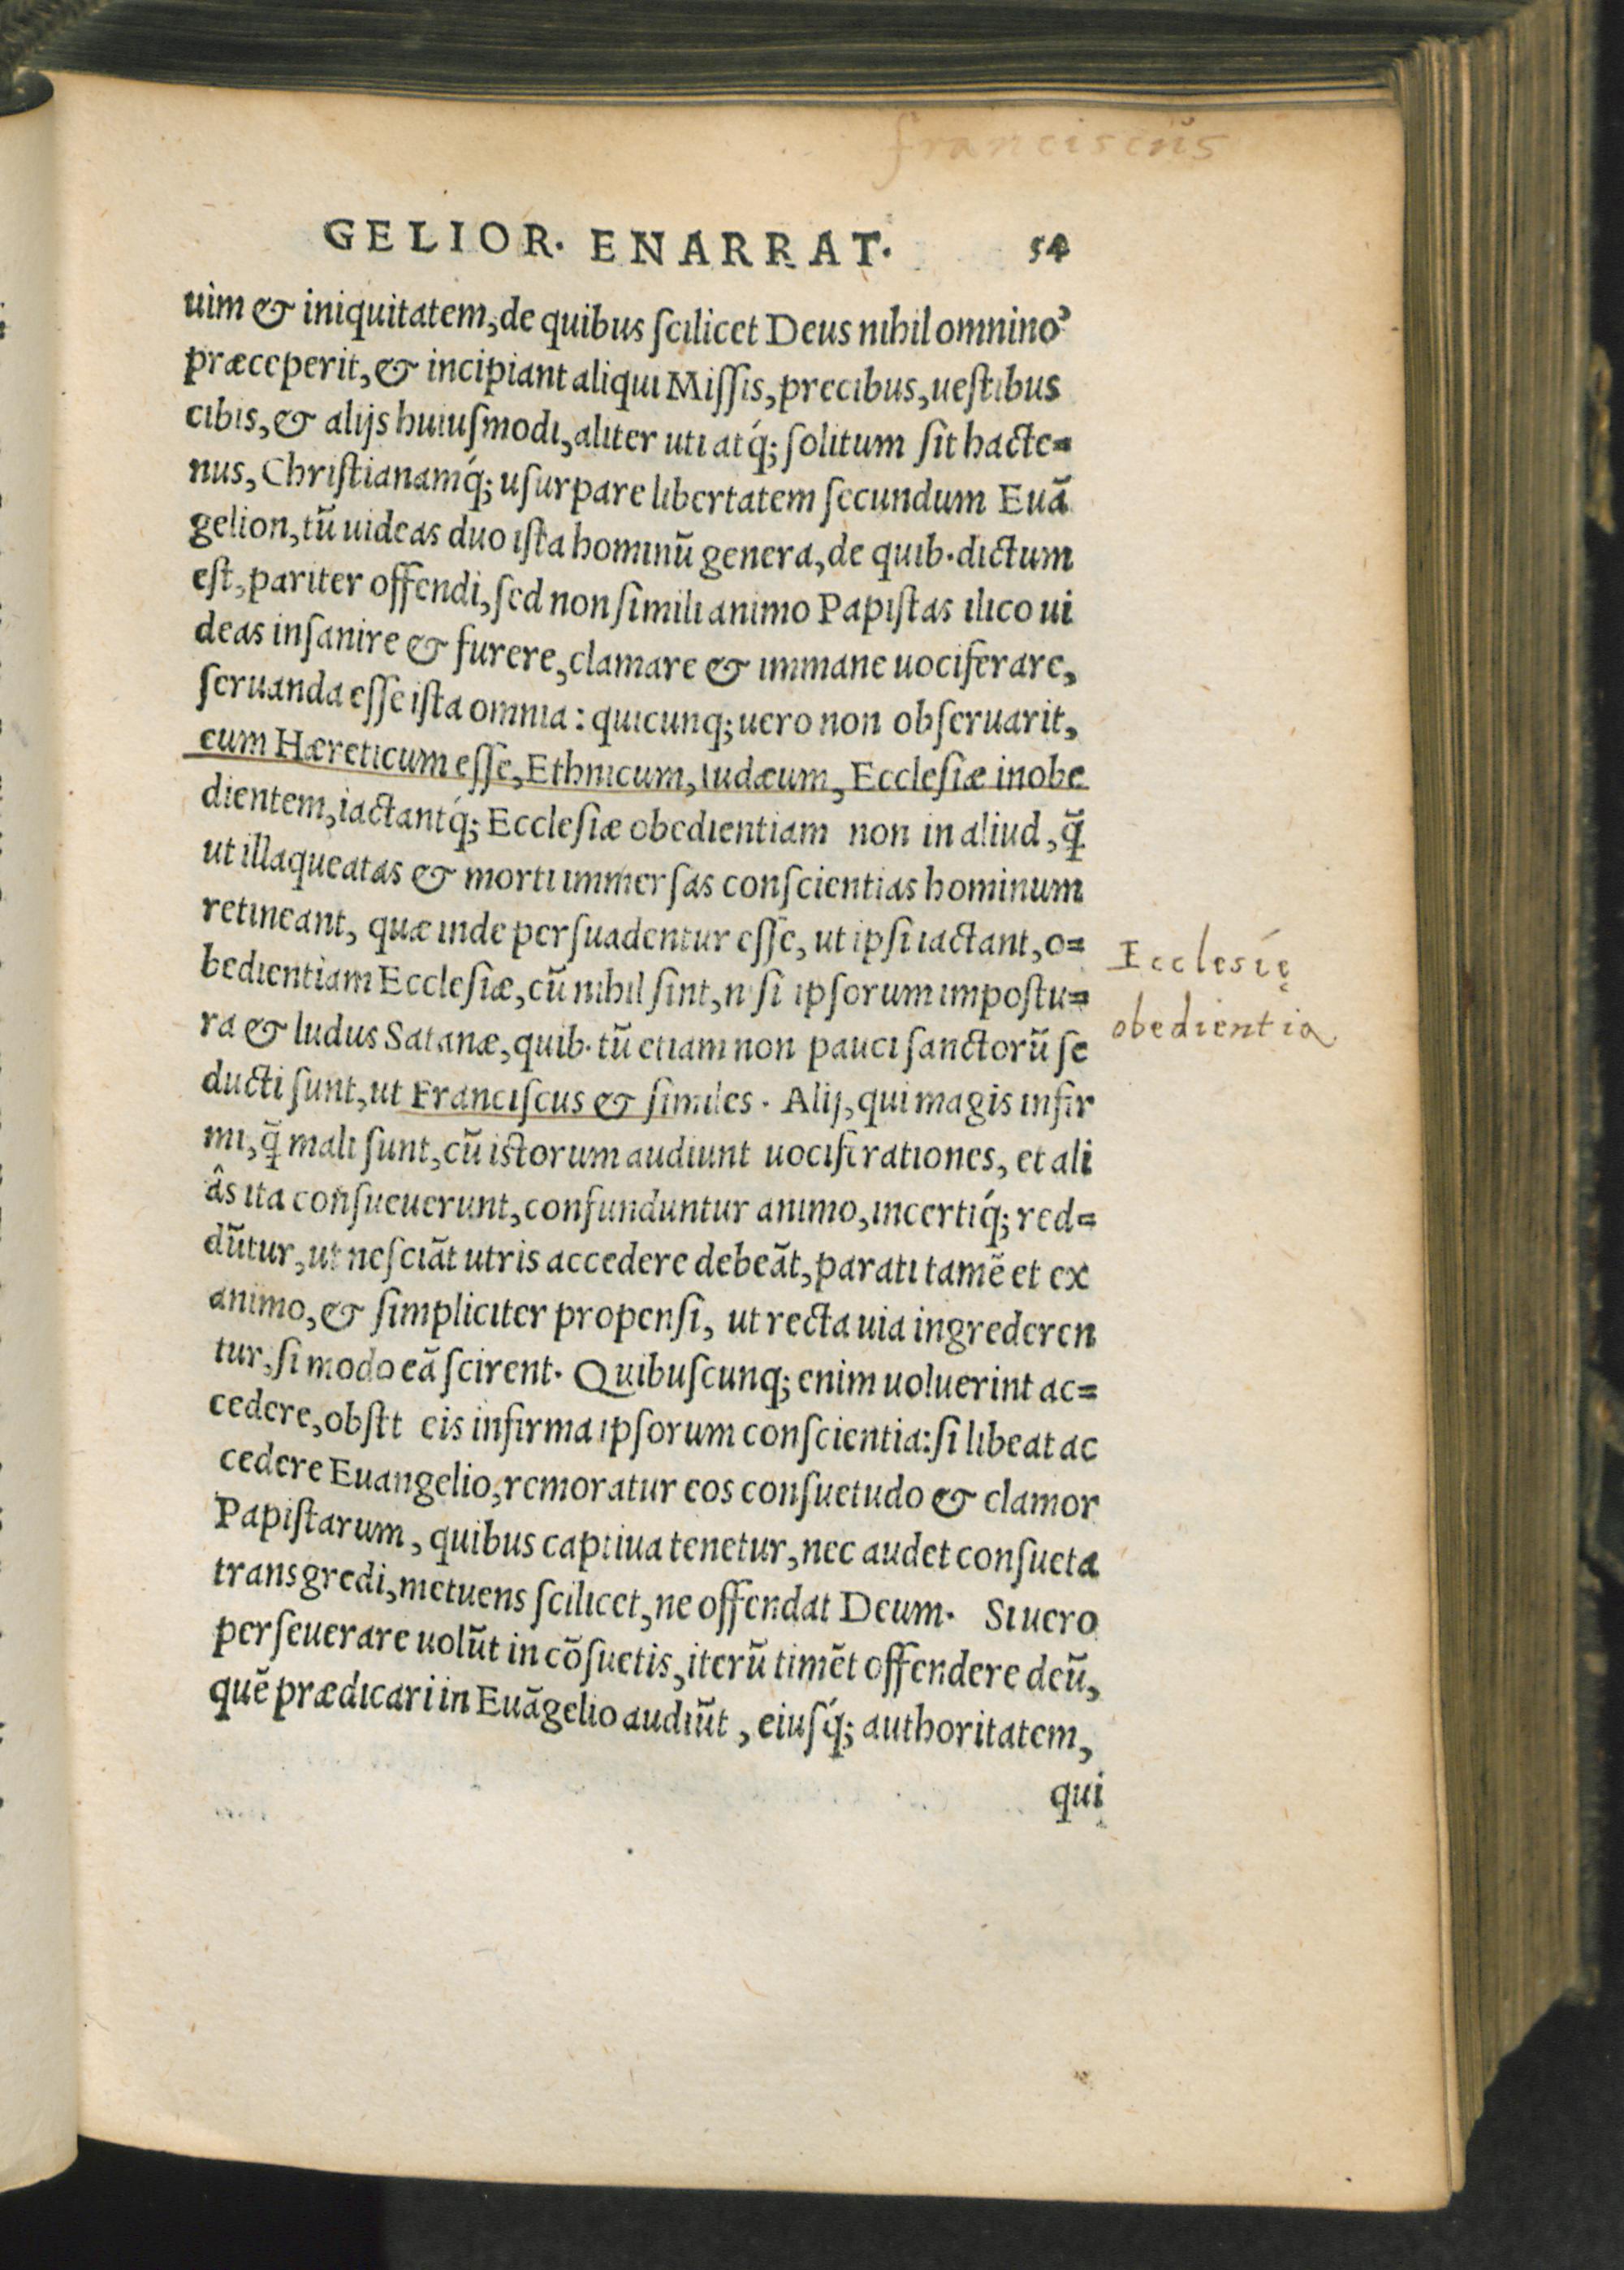 franciscus
GELIOR. ENARRAT. 54
uim & iniquitatem, de quibus ſcilicet Deus nihil omnino
præceperit, & incipiant aliqui Miſſis, precibus, ueſtibus
cibis, & alijs huiuſmodi, aliter uti atq́; ſolitum ſit hacte=
nus, Chriſtianamq́; uſurpare libertatem ſecundum Euã
gelion, tũ uideas duo iſta hominũ genera, de quib. dictum
eſt, pariter offendi, ſed non ſimili animo Papiſtas ilico ui
deas inſanire & furere, clamare & immane uociferare,
ſeruanda eſſe iſta omnia: quicunq; uero non obſeruarit,
eum Hæreticum eſſe, Ethnicum, Iudæum, Eccleſiæ inobe
dientem, iactantq́; Eccleſiæ obedientiam non in aliud, q̃
ut illaqueatas & morti immerſas conſcientias hominum
retineant, quæ inde perſuadentur eſſe, ut ipſi iactant, o=
bedientiam Eccleſiæ, cũ nihil ſint, niſi ipſorum impoſtu=
ra & ludus Satanæ, quib. tũ etiam non pauci ſanctorũ ſe
ducti ſunt, ut Franciſcus & ſimiles. Alij, qui magis infir
mi, q̃ mali ſunt, cũ istorum audiunt uociferationes, et ali
âs ita conſueuerunt, confunduntur animo, incertiq́; red=
dũtur, ut neſciãt utris accedere debeãt, parati tamẽ et ex
animo, & ſimpliciter propenſi, ut recta uia ingrederen
tur, ſi modo eã ſcirent. Quibuſcunq; enim uoluerint ac=
cedere, obſtt eis infirma ipſorum conſcientia: ſi libeat ac
cedere Euangelio, remoratur eos conſuetudo & clamor
Papiſtarum, quibus captiua tenetur, nec audet conſueta
transgredi, metuens ſcilicet, ne offendat Deum. Si uero
perſeuerare uolũt in cõſuetis, iterũ timẽt offendere deũ,
quẽ prædicari in Euãgelio audiũt, eiuſq́; authoritatem,
qui
Ecclesię
obedientia